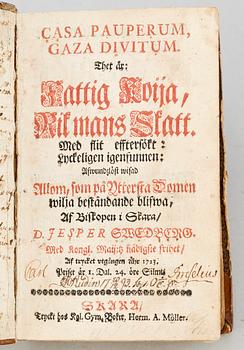 CASA PAUPERUM,
GAZA DIVITUM.
Thet är:
Fattig Koija,
Rik mans Skatt.
Med flit efftersökt:
Lyckeligen igenfunnen:
Afwundzlöst wisad
Allom, som på Yttersta Domen
wilja beståndande blifwa,
Af Biskopen i Skara/
D. JESPER SWEDBERG.
Med Kongl. Maij:tz nådigste frihet/
Af trycket utgången åhr 1713.
Priset är 1. Dal. 24. öre Silfm:
Carl
SKARA/
Tryckt hos Kgl. Gym. Boktr. Herm. A. Möller.